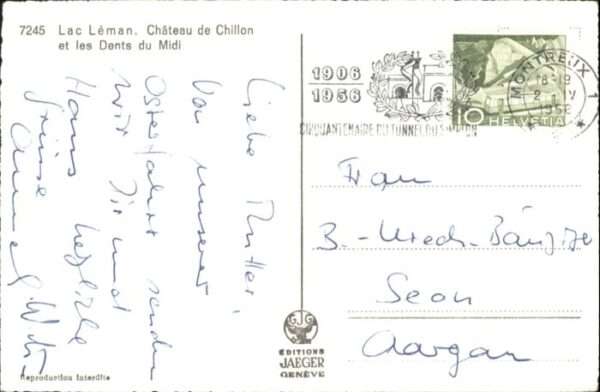 7245 Lac Léman. Château de Chillon
et les Dents du Midi
Liebe Mutter!
Von unserer
Osterfahrt senden
wir Dir und
Hans herzliche
Grüsse
1906
1956
CINQUANTENAIRE DU TUNNEL DU SIMPLON
MONTREUX 1
18-19
2. IV
1956
10 HELVETIA
Frau
B.-Urech-Bänziger
Seon
Aargau
EDITIONS
JAEGER
GENÈVE
Reproduction interdite